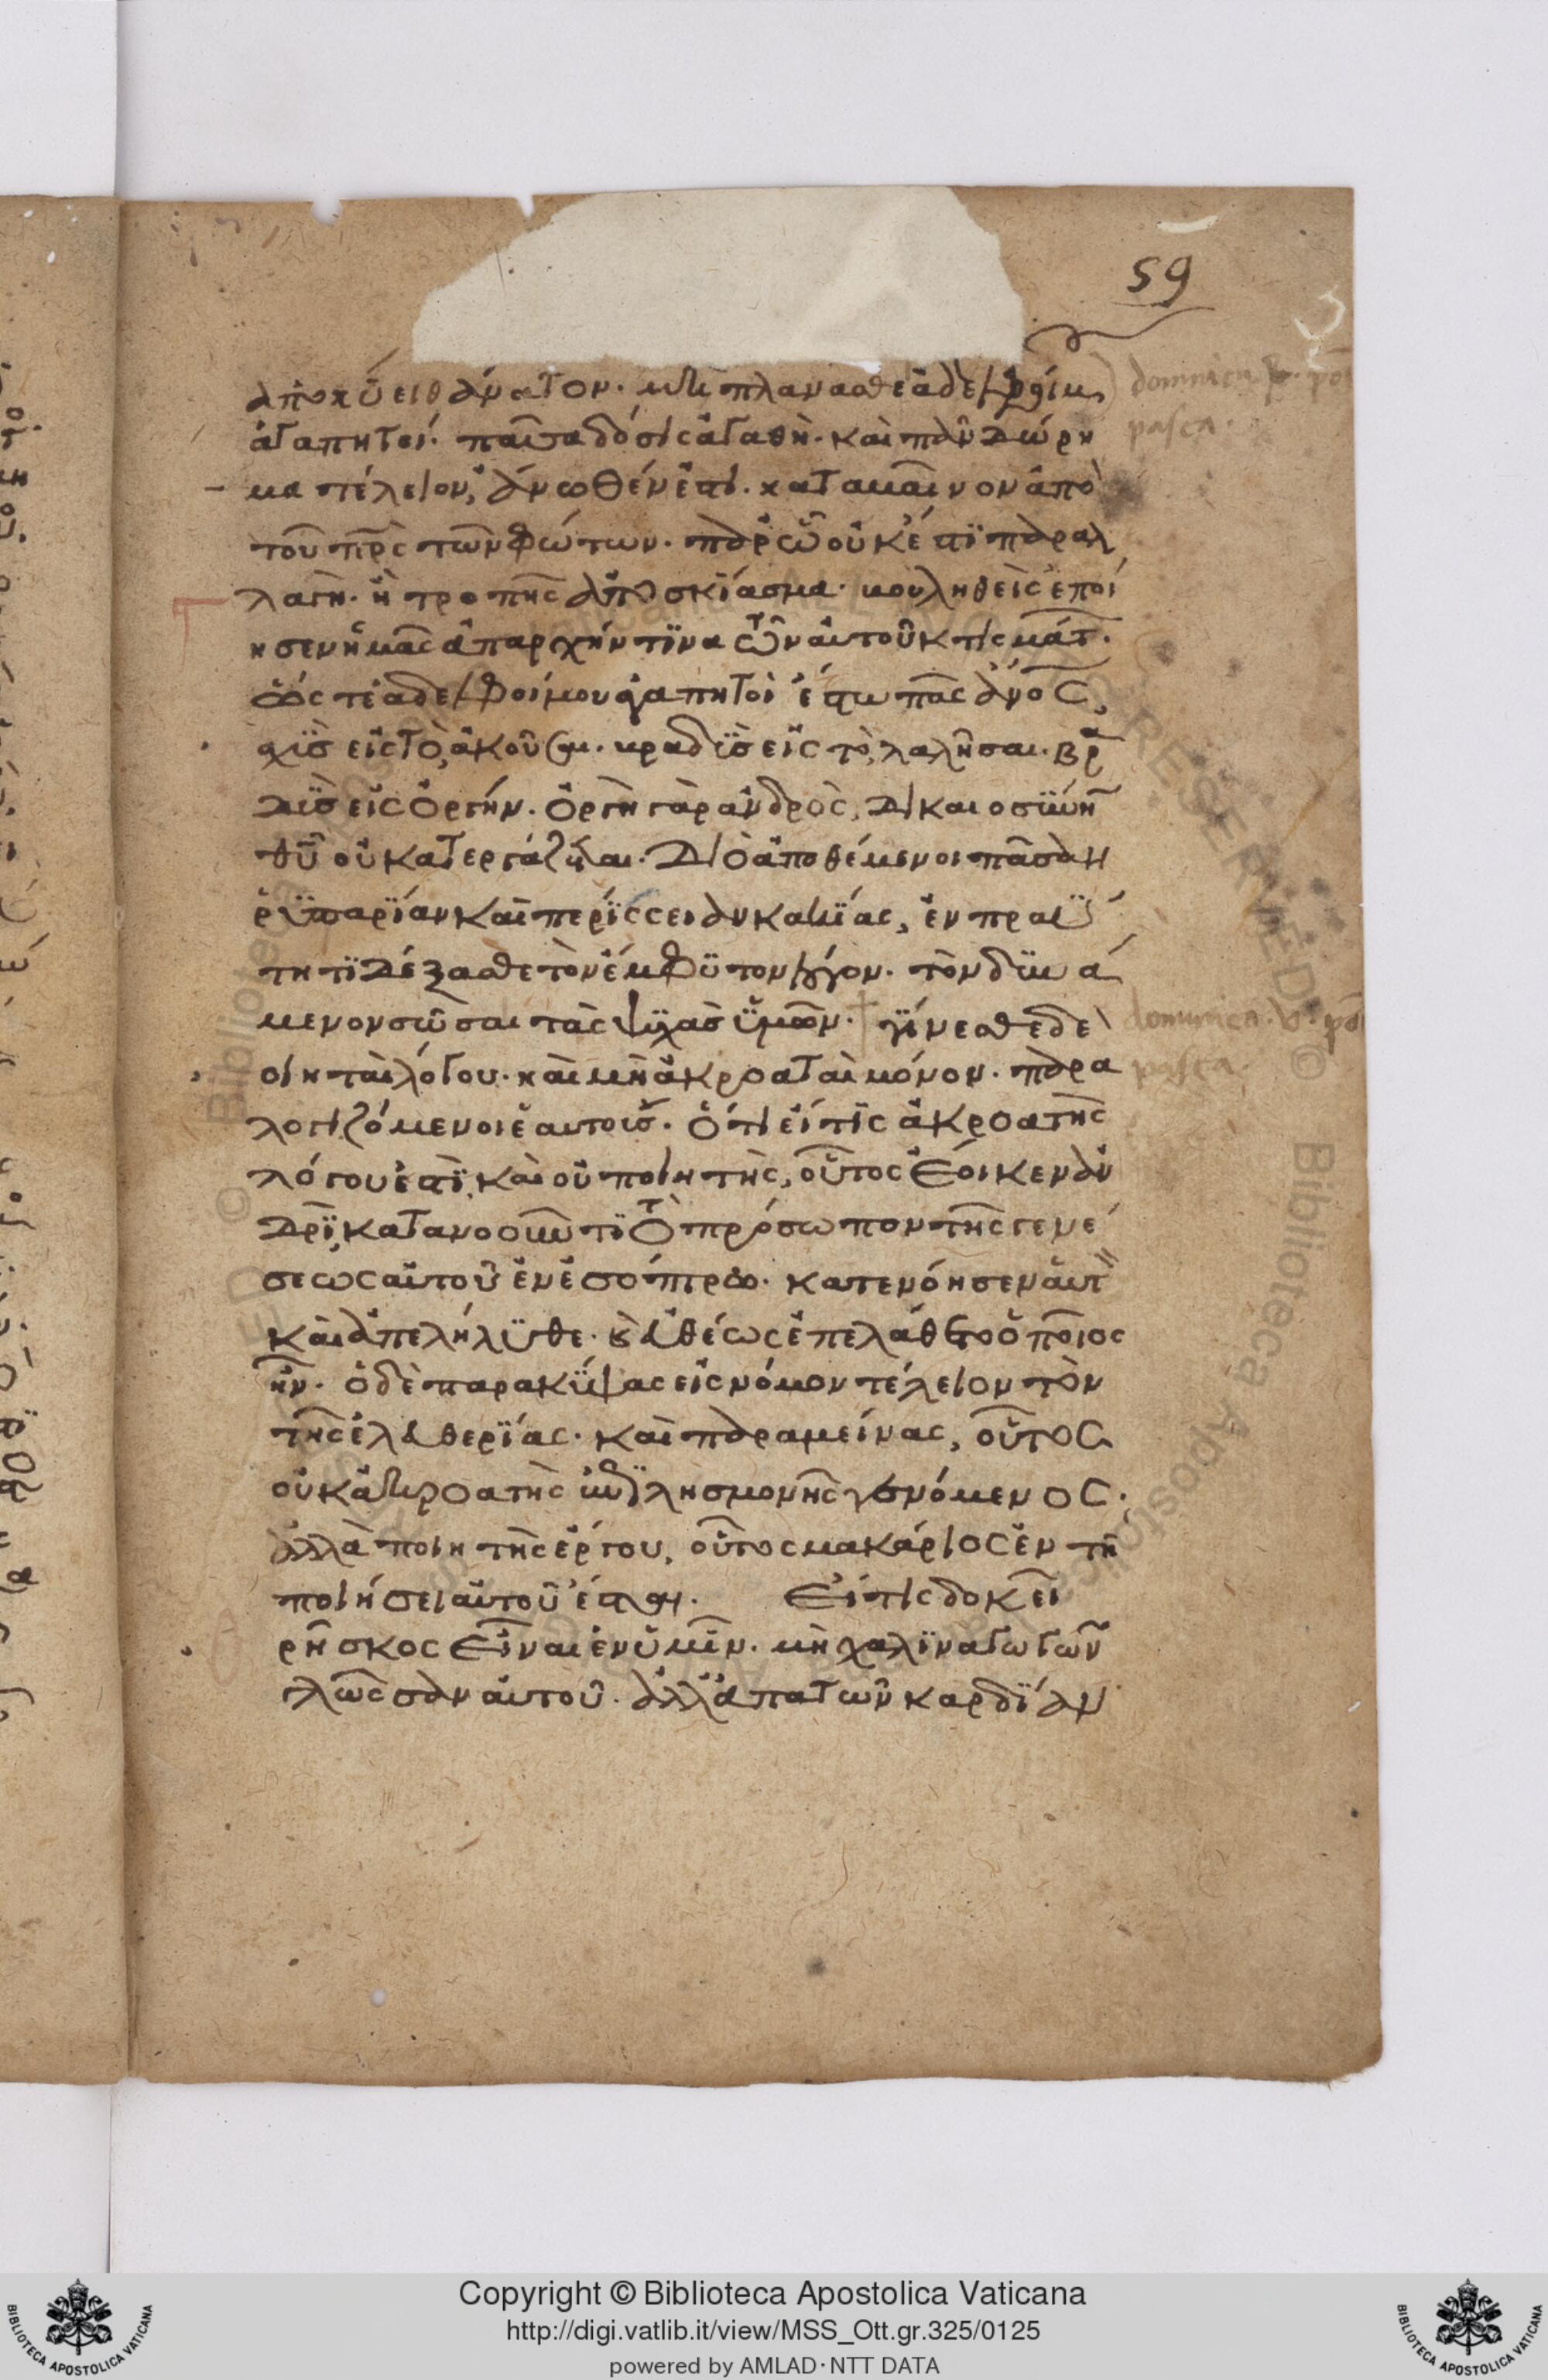 59
ἀποκύει θάνατον. μὴ πλανᾶσθε ἀδελφοί μου
domnica
ἀγαπητοί. πᾶσα δόσις ἀγαθὴ. καὶ πᾶν δώρη
pasca.
μα τέλειον, ἄνωθέν ἐστι. καταβαῖνον ἀπὸ
τοῦ πρς τῶν φώτων. παρ ὧ οὐκ ἔστϊ παραλ
λαγὴ. ἢ τροπῆς ἀποσκΐασμα. βουληθεὶς ἐποί
ησεν ἡμᾶς ἀπαρχήν τϊνα τῶν αὐτοῦ κτισμάτ.
ὥς τε ἀδελφοί μου ἀγαπητοὶ ἔστω πᾶς ἄνος
ταχϋς εἰς τὸ, ἀκοῦσαι. βραδϋς εἰς τὸ, λαλῆσαι. βρα
δϋς εἰς ὀργήν. ὀργὴ γὰρ ἀνδρὸς, δικαιοσϋνη
θῦ οὐ κατεργάζεται. Διὸ ἀποθέμενοι πᾶσαν
ῥϋπαρϊαν καὶ περϊσσειαν κακΐας, ἐν πραϋ
τητϊ δέξασθε τὸν ἔμφϋτον λόγον. τὸν δϋνά
μενον σῶσαι τὰς ψϋχὰς ϋμῶν. † γϊνεσθε δὲ
domnica. pasca.
ποιηταὶ λόγου. καὶ μὴ ἀκροαταὶ μόνον. παρα
λογιζόμενοι ἑαυτοις. ὅτι εἴ τις ἀκροατὴς
λόγου ἐστϊ, καὶ οὐ ποιητὴς, οὗτος ἔοικεν ἀν
δρϊ, κατανοοῦντϊ τὸ πρόσωπον τῆς γενέ
σεως αὐτοῦ ἐν ἐσόπτρω. κατενόησεν αὑτ
καὶ ἀπελήλϋθε. κ εὐθέως ἐπελάθετο ὁποῖος
ἦν. ὁ δὲ παρακϋψας εἰς νόμον τέλειον τὸν
τῆς ἐλευθερϊας. καὶ παραμείνας, οὗτος
οὐκ ἀκροατὴς ἐπϊλησμονῆς γενόμενος.
ἀλλὰ ποιητὴς ἔργου, οὗτος μακάριος ἐν τῆ
ποιήσει αὐτοῦ ἔσται. Εἴ τις δοκεῖ
ρῆσκος εἶναι ἐν ὑμῖν. μὴ χαλϊναγωγῶν
γλῶσσαν αὐτοῦ. ἀλλ ἀπατῶν καρδΐαν
Copyright © Biblioteca Apostolica Vaticana
http://digi.vatlib.it/view/MSS_Ott.gr.325/0125
powered by AMLAD·NTT DATA
BIBLIOTECA APOSTOLICA VATICANA
BIBLIOTECA APOSTOLICA VATICANA